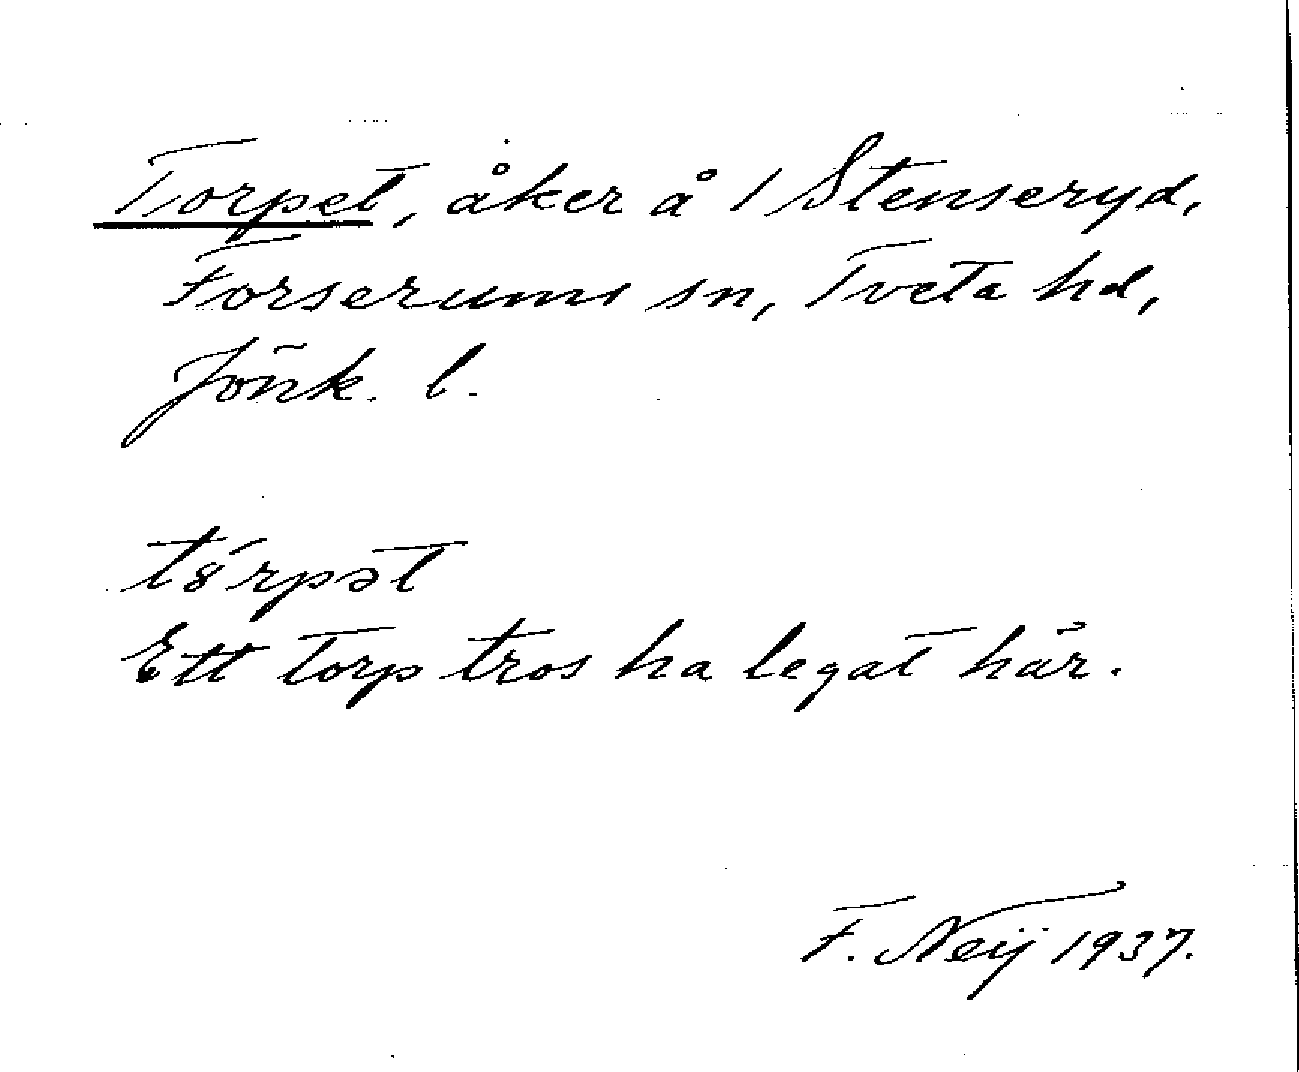 Torpet, åker å 1 Stenseryd,
Forserums sn, Tveta hd,
Jönk. l.
tȣ́rpət
Ett torp tros ha legat här.
F. Neij 1937.